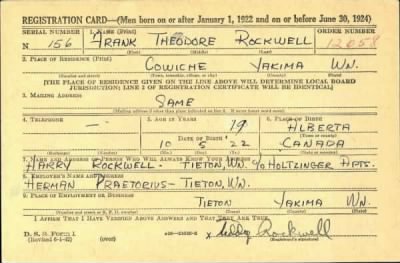 REGISTRATION CARD—(Men born on or after January 1, 1922 and on or before June 30, 1924)
SERIAL NUMBER 1. NAME (Print) ORDER NUMBER
N 156 FRANK THEODORE ROCKWELL 12058
(First) (Middle) (Last)
2. PLACE OF RESIDENCE (Print)
COWICHE YAKIMA WN.
(Number and street) (Town, township, village, or city) (County) (State)
[THE PLACE OF RESIDENCE GIVEN ON THE LINE ABOVE WILL DETERMINE LOCAL BOARD
JURISDICTION; LINE 2 OF REGISTRATION CERTIFICATE WILL BE IDENTICAL]
3. MAILING ADDRESS
SAME
(Mailing address if other than place indicated on line 2. If same insert word same)
4. TELEPHONE 5. AGE IN YEARS 6. PLACE OF BIRTH
— 19 ALBERTA
DATE OF BIRTH
10 5 22 CANADA
7. NAME AND ADDRESS OF PERSON WHO WILL ALWAYS KNOW YOUR ADDRESS
HARRY ROCKWELL - TIETON, WN. % HOLTZINGER APTS.
8. EMPLOYER'S NAME AND ADDRESS
HERMAN PRAETORIUS - TIETON, WN.
9. PLACE OF EMPLOYMENT OR BUSINESS
TIETON YAKIMA WN
(Number and street or R. F. D. number) (Town) (County) (State)
I AFFIRM THAT I HAVE VERIFIED ABOVE ANSWERS AND THAT THEY ARE TRUE.
D. S. S. Form 1
(Revised 6-1-42) (over) x Teddy Rockwell
(Registrant's signature)